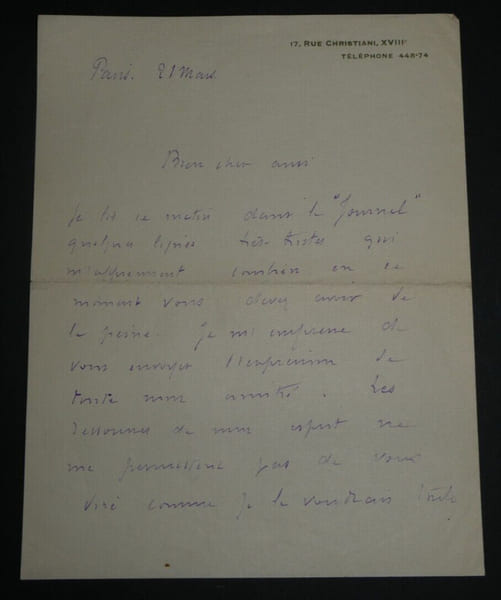 17, RUE CHRISTIANI, XVIIIᵉ
TÉLÉPHONE 448-74
Paris. 21 Mars
Bien cher ami
Je lis ce matin dans le "Journal"
quelques lignes très tristes qui
m'apprennent combien en ce
moment vous devez avoir de
la peine. Je m'empresse de
vous envoyer l'expression de
toute mon amitié. Les
ressources de mon esprit ne
me permettent pas de vous
comme je le voudrais